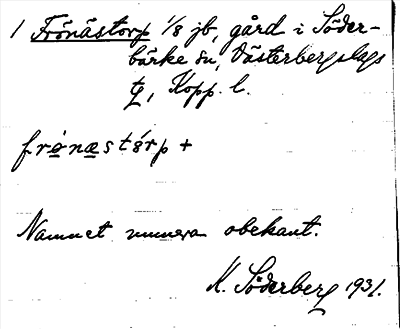 1 Frönästorp 1/8 jb, gård i Söder-
bärke sn, Västerbergslags
tg, Kopp. l.
frönæstórp +
Namnet numera obekant.
K. Söderberg 1931.